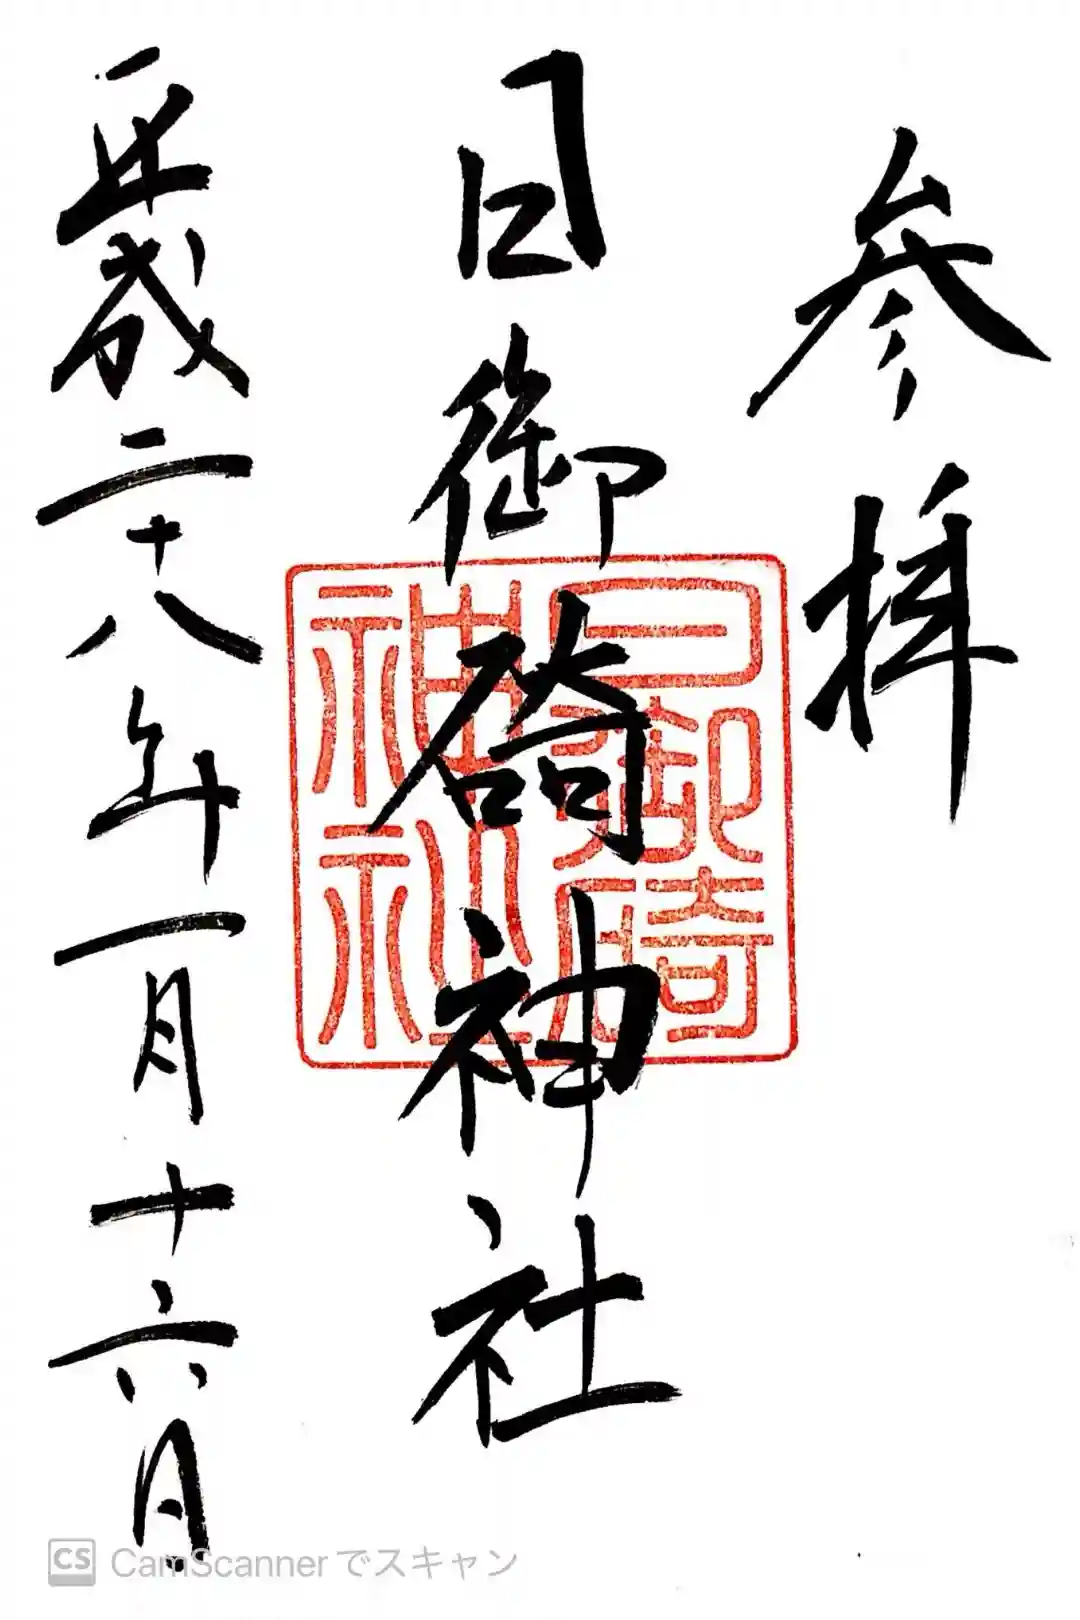 参拝
日御碕神社
日御碕
神社
平成二十八年一月十六日
CS CamScannerでスキャン